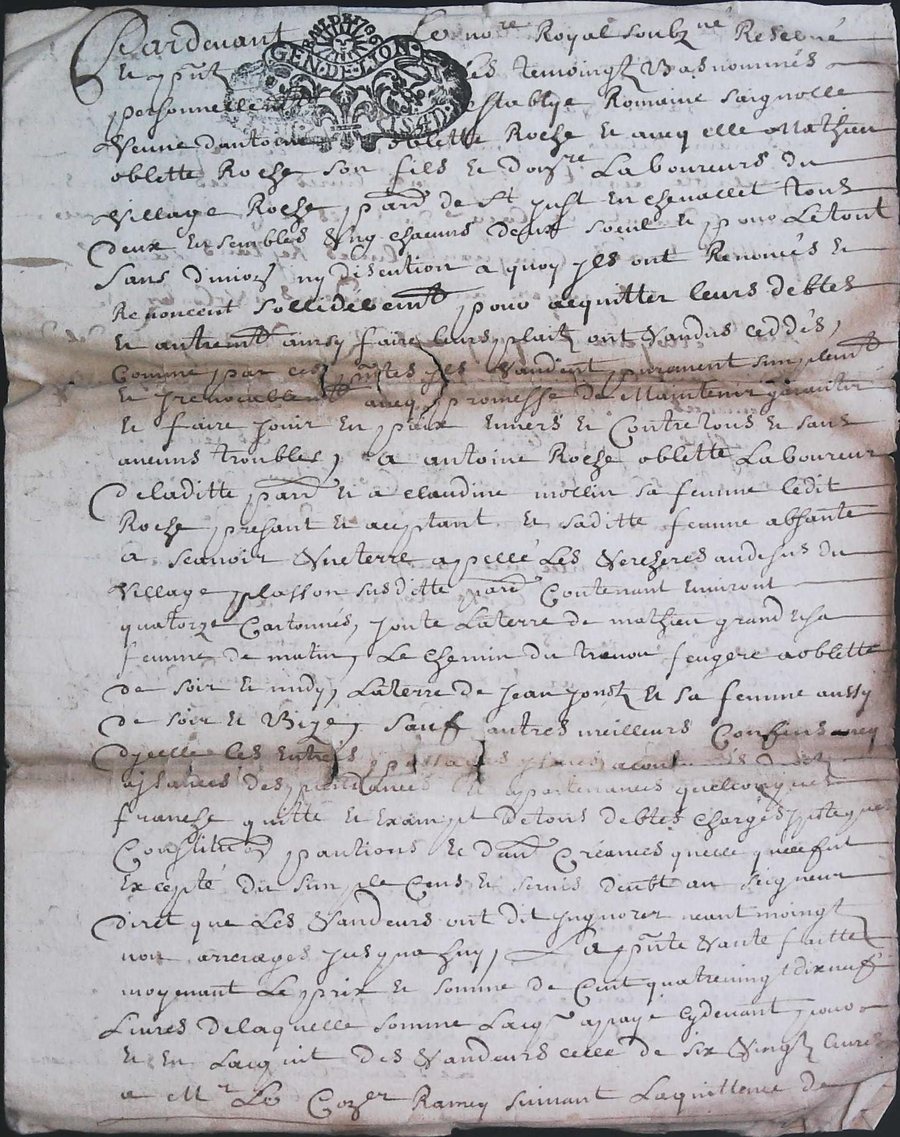 Pardevant Le no.re Royal soubz.né Reservé
Et p̄ntz les temoingtz Bas nommés
personnellem establye Romaine saignolle
GEN·DE·LION
Veuve dantoine oblette Roche Et avecq elle Mathieu
oblette Roche son fils Et Laboureurs du
Village Roche parr de St just En chevallet tous
deux Ensembles & ung chacuns deux seul Et pour Letout
sans division ny disention a quoy jls ont Renoncés Et
Renoncent sollidelemt pour acquitter leurs debtes
Et autremt ainsy faire leurs plaitz ont Vandus ceddés,
Comme par ces p̄ntes jls Vandent purement simplemt
Et jrrevocablemt avecq promesse de Maintenir garantir
Et faire jouir En paix Envers Et Contre tous Et sans
aucuns troubles, a antoine Roche oblette Laboureur
Deladitte parr Et a claudine mollin sa femme ledit
Roche presant Et aceptant Et saditte femme absante
a scavoir Une terre appellé Les Vercheres audesus du
Village plasson susditte parr Contenant Environt
quatorze Cartonnés, joute Laterre de mathieu grand & sa
femme de matin, Le chemin du feugere a oblette
de soir Et midy, Laterre de Jean Et sa femme aussy
de soir Et Bize, sauf autres meilleurs Confins avecq
Djcelle les Entrés passages
aysances despandances Et apartenances quelconques
franche quitte Et Exampt De tous debtes charges
Constitutions pantions Et Créances quelle quelle fut
Excepté du simple Cens Et servis deubt au seigneur
Diret que Les Vandeurs ont dit jngnorer neantmoingt
non arerages jusqua huy, La p̄nte Vante faitte
moyenant Le prix Et somme de Cent quatrevingt dixneuf
Livres De laquelle somme Lacqr a payé Cydevant pour
Et En Lacquit des Vandeurs celle de six Vingtz livres
a Mr Le Ramey suivant Laquittence de